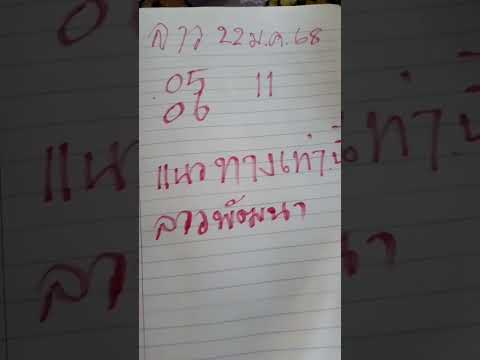 ลาว 22 ม.ค. 68
05 11
06
แนวทางเท่านั้น
ลาวพัฒนา